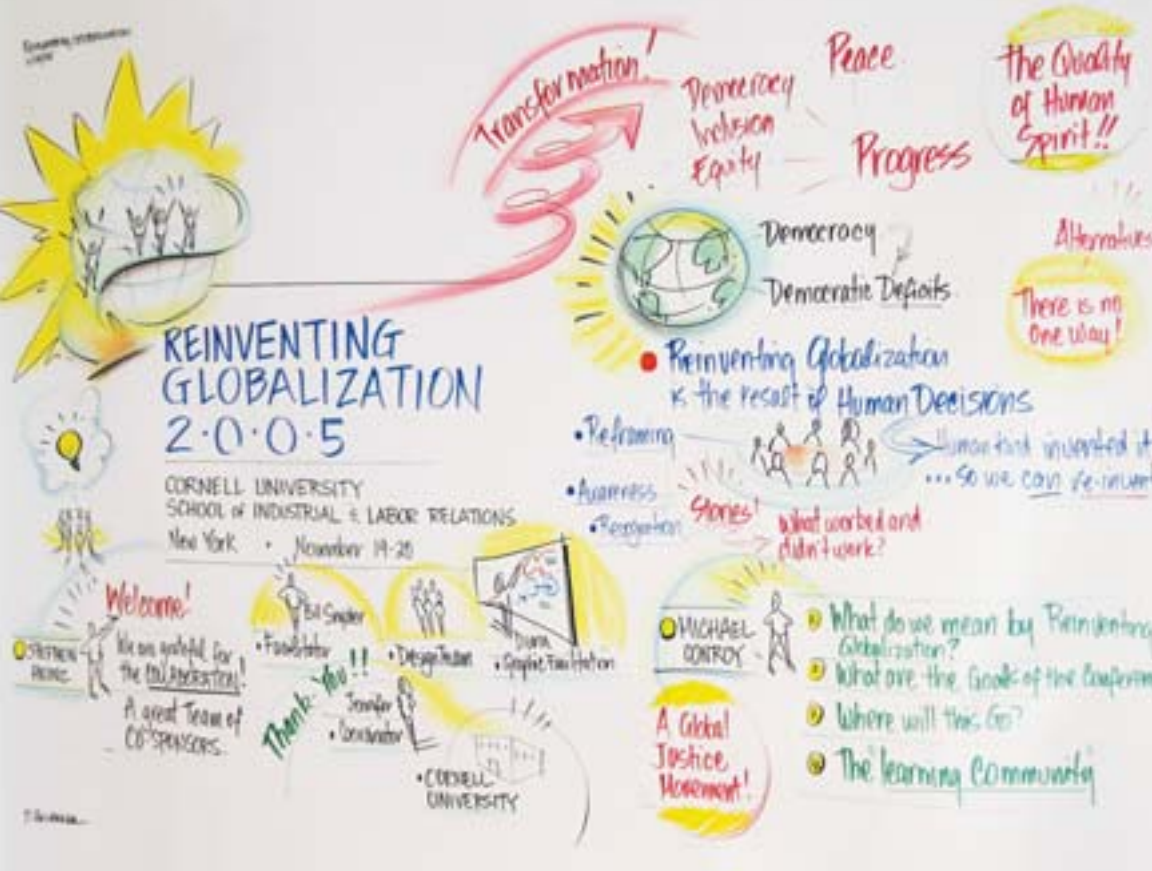 Transformation!
Democracy
Inclusion
Equity
Peace
Progress
The Quality
of Human
Spirit!!
Democracy
Democratic Deficits
Alternatives
There is no
one way!
REINVENTING
GLOBALIZATION
2·0·0·5
CORNELL UNIVERSITY
SCHOOL of INDUSTRIAL & LABOR RELATIONS
New York • November 19-20
Reinventing Globalization
is the result of Human Decisions
• Reframing
• Awareness
• Recognition
Stories!
What worked and
didn't work?
Humankind invented it
...so we can re-invent
Welcome!
We are grateful for
the COLLABORATION!
A great Team of
CO-SPONSORS.
Bill
• Facilitator
• Design Team
• Graphic Facilitation
Thank-You!!
Jennifer
• Coordinator
• CORNELL
UNIVERSITY
MICHAEL
CONROY
What do we mean by Reinventing
Globalization?
What are the Goals of the Conferen
Where will this Go?
The learning Community
A Global
Justice
Movement!